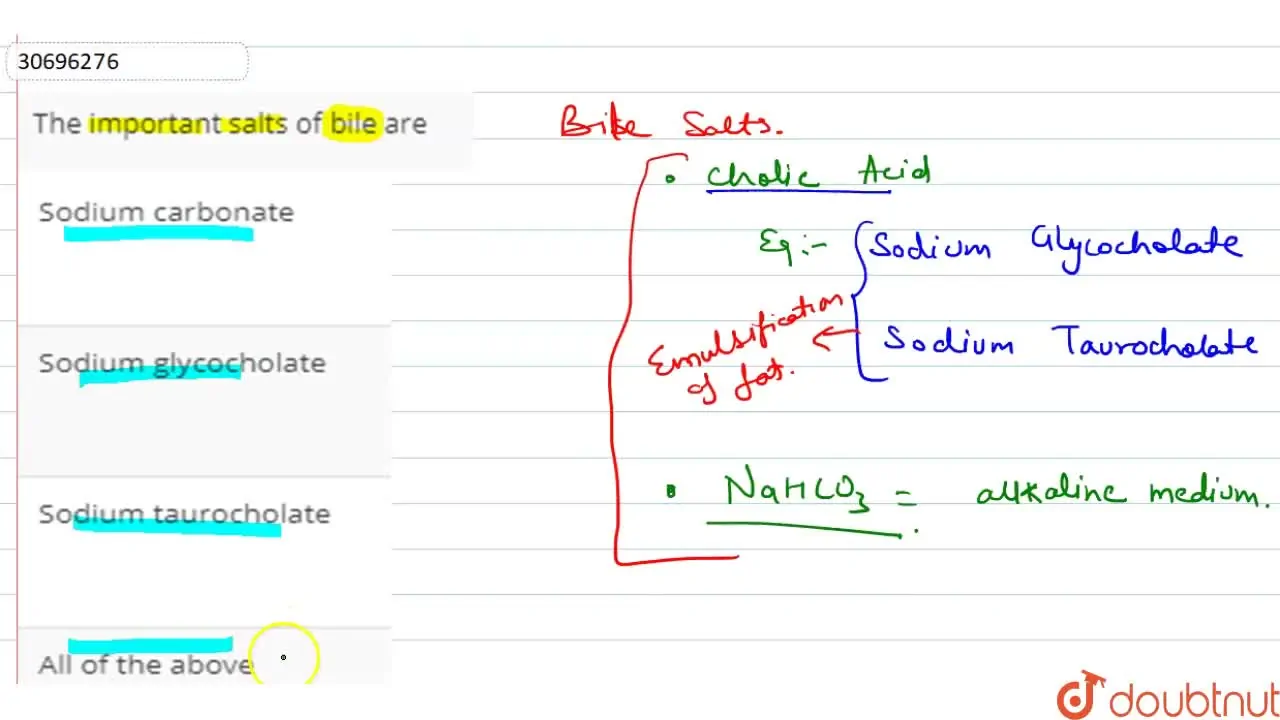 30696276
The important salts of bile are
Sodium carbonate
Sodium glycocholate
Sodium taurocholate
All of the above
Bile Salts.
• Cholic Acid
Eg:- Sodium Glycocholate
Sodium Taurocholate
Emulsification
of fat.
• NaHCO3 = alkaline medium.
doubtnut